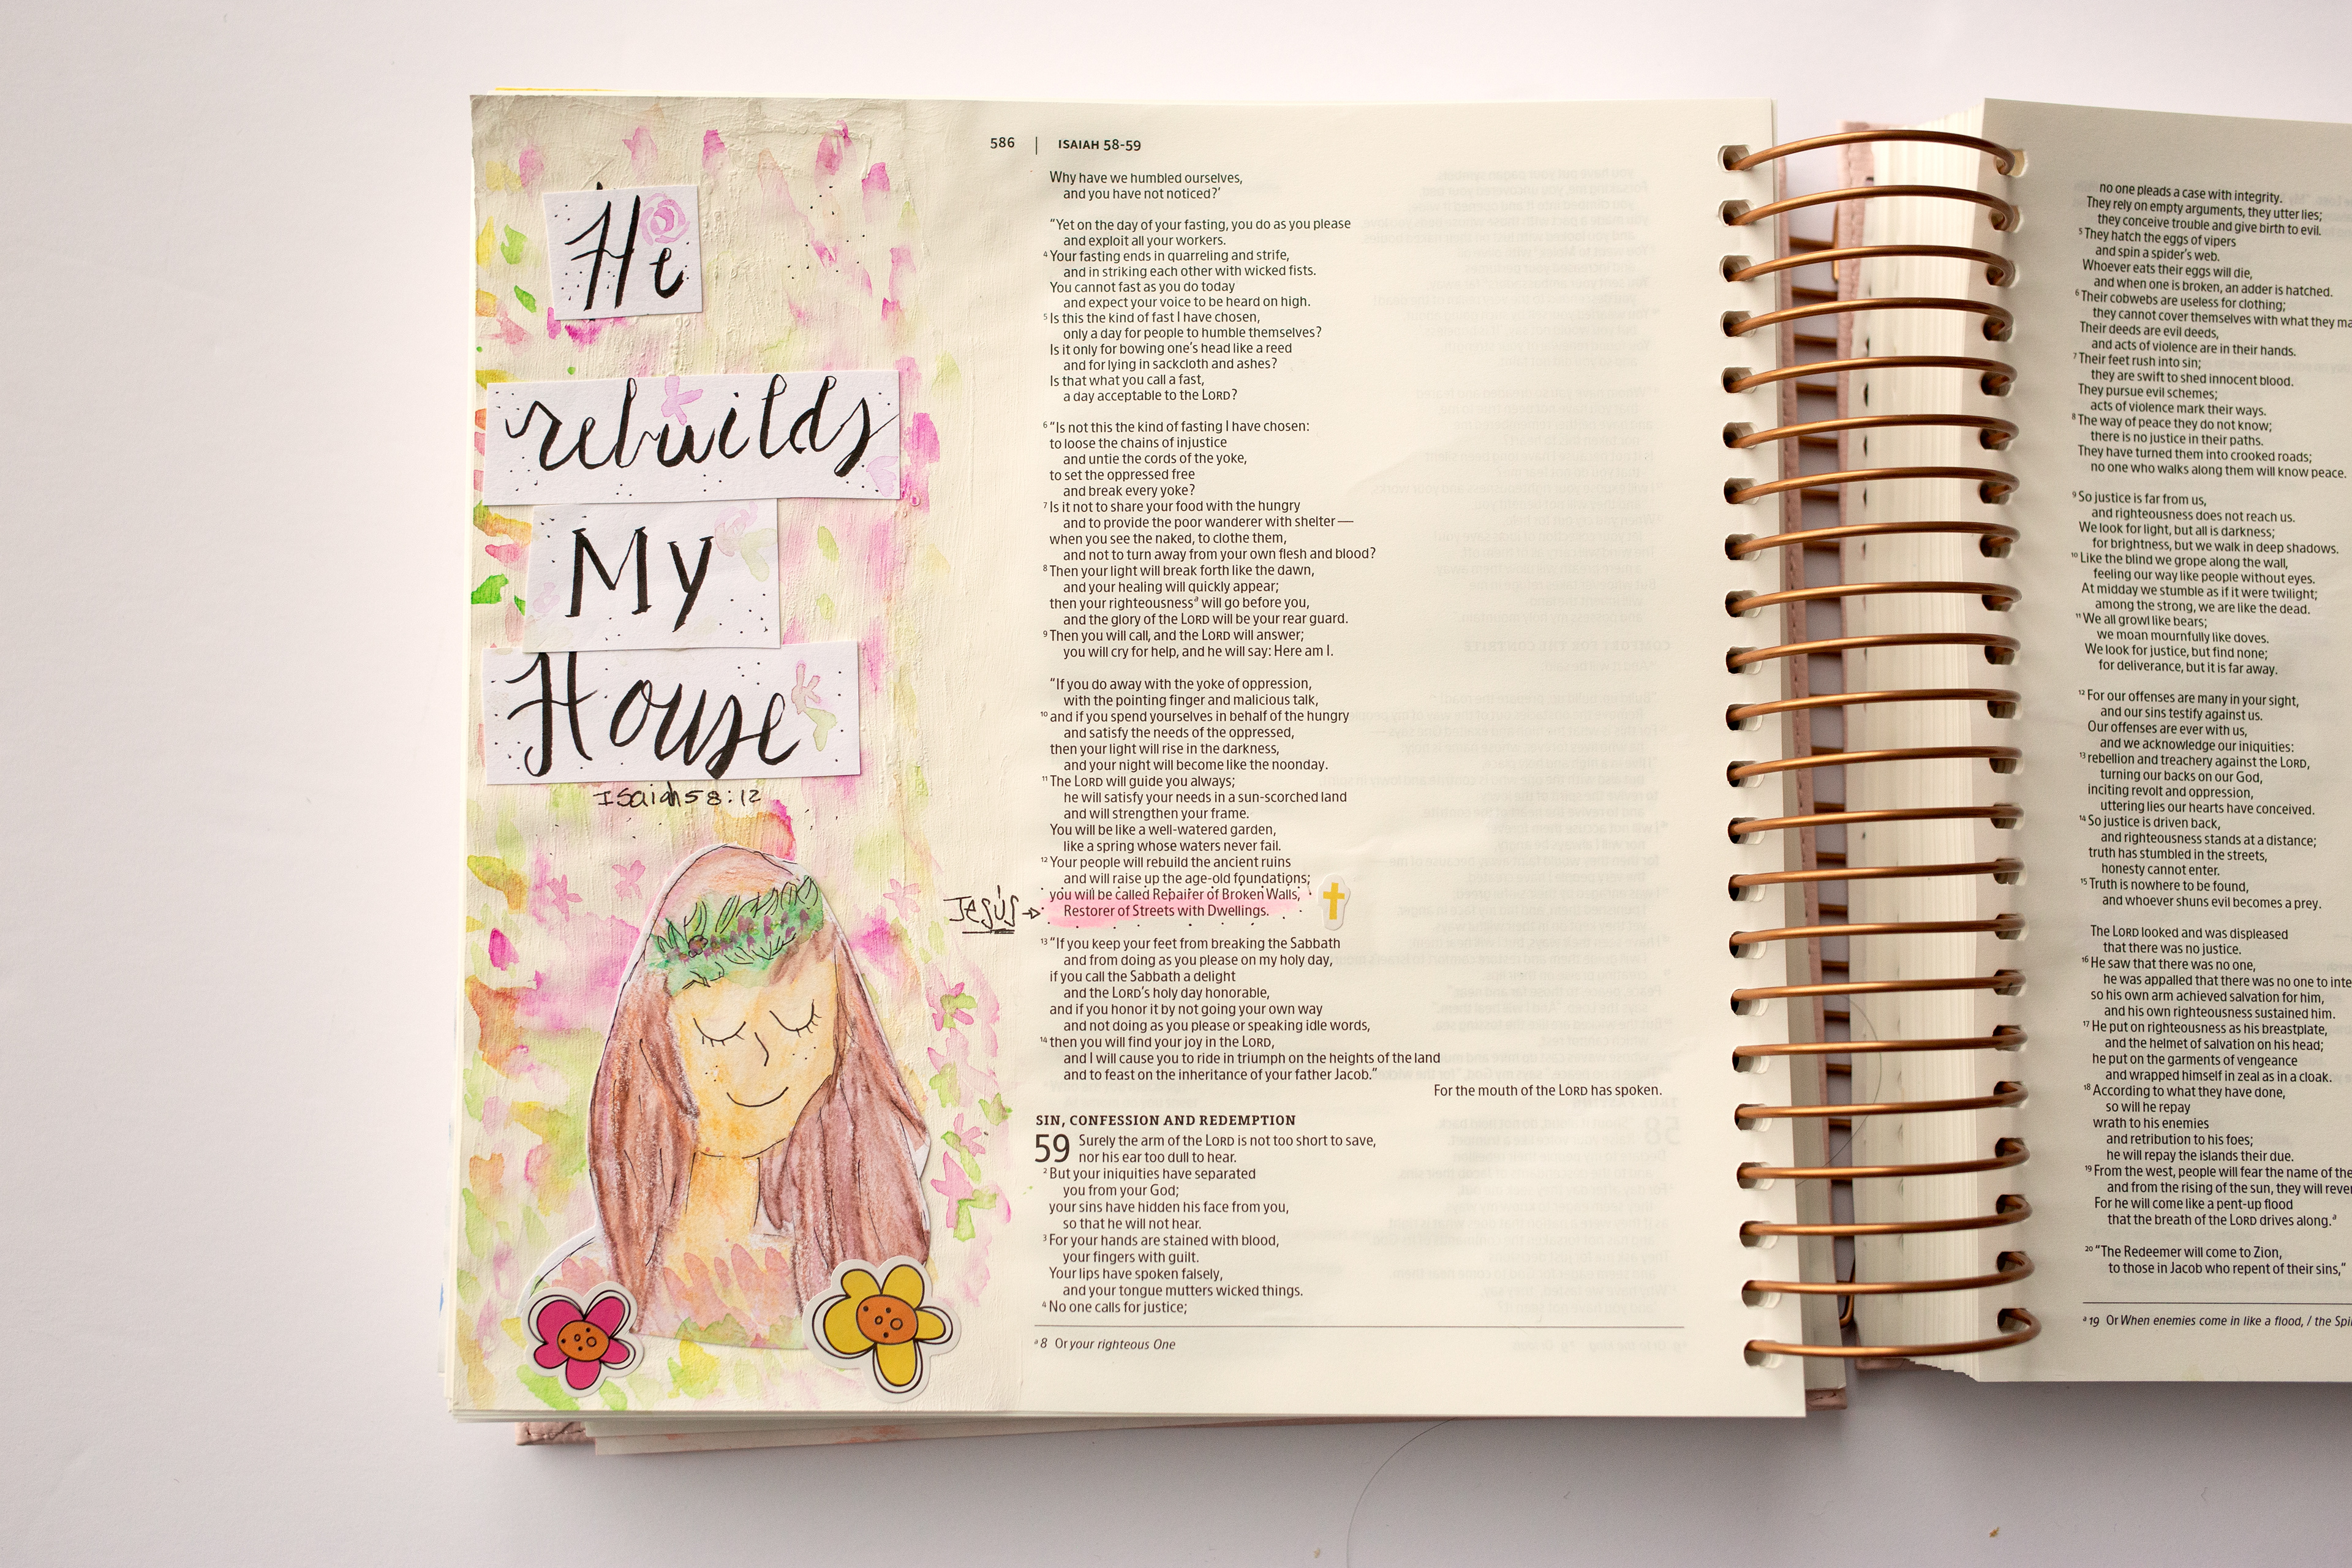 He
rebuilds
My
House
Isaiah 58:12
586 | ISAIAH 58-59
Why have we humbled ourselves,
and you have not noticed?’
“Yet on the day of your fasting, you do as you please
and exploit all your workers.
4 Your fasting ends in quarreling and strife,
and in striking each other with wicked fists.
You cannot fast as you do today
and expect your voice to be heard on high.
5 Is this the kind of fast I have chosen,
only a day for people to humble themselves?
Is it only for bowing one’s head like a reed
and for lying in sackcloth and ashes?
Is that what you call a fast,
a day acceptable to the LORD?
6 “Is not this the kind of fasting I have chosen:
to loose the chains of injustice
and untie the cords of the yoke,
to set the oppressed free
and break every yoke?
7 Is it not to share your food with the hungry
and to provide the poor wanderer with shelter—
when you see the naked, to clothe them,
and not to turn away from your own flesh and blood?
8 Then your light will break forth like the dawn,
and your healing will quickly appear;
then your righteousness a will go before you,
and the glory of the LORD will be your rear guard.
9 Then you will call, and the LORD will answer;
you will cry for help, and he will say: Here am I.
“If you do away with the yoke of oppression,
with the pointing finger and malicious talk,
10 and if you spend yourselves in behalf of the hungry
and satisfy the needs of the oppressed,
then your light will rise in the darkness,
and your night will become like the noonday.
11 The LORD will guide you always;
he will satisfy your needs in a sun-scorched land
and will strengthen your frame.
You will be like a well-watered garden,
like a spring whose waters never fail.
12 Your people will rebuild the ancient ruins
and will raise up the age-old foundations;
you will be called Repairer of Broken Walls,
Jesús → Restorer of Streets with Dwellings.
13 “If you keep your feet from breaking the Sabbath
and from doing as you please on my holy day,
if you call the Sabbath a delight
and the LORD’s holy day honorable,
and if you honor it by not going your own way
and not doing as you please or speaking idle words,
14 then you will find your joy in the LORD,
and I will cause you to ride in triumph on the heights of the land
and to feast on the inheritance of your father Jacob.”
For the mouth of the LORD has spoken.
SIN, CONFESSION AND REDEMPTION
59 Surely the arm of the LORD is not too short to save,
nor his ear too dull to hear.
2 But your iniquities have separated
you from your God;
your sins have hidden his face from you,
so that he will not hear.
3 For your hands are stained with blood,
your fingers with guilt.
Your lips have spoken falsely,
and your tongue mutters wicked things.
4 No one calls for justice;
a 8 Or your righteous One
no one pleads a case with integrity.
They rely on empty arguments, they utter lies;
they conceive trouble and give birth to evil.
5 They hatch the eggs of vipers
and spin a spider’s web.
Whoever eats their eggs will die,
and when one is broken, an adder is hatched.
6 Their cobwebs are useless for clothing;
they cannot cover themselves with what they
Their deeds are evil deeds,
and acts of violence are in their hands.
7 Their feet rush into sin;
they are swift to shed innocent blood.
They pursue evil schemes;
acts of violence mark their ways.
8 The way of peace they do not know;
there is no justice in their paths.
They have turned them into crooked roads;
no one who walks along them will know peace.
9 So justice is far from us,
and righteousness does not reach us.
We look for light, but all is darkness;
for brightness, but we walk in deep shadows.
10 Like the blind we grope along the wall,
feeling our way like people without eyes.
At midday we stumble as if it were twilight;
among the strong, we are like the dead.
11 We all growl like bears;
we moan mournfully like doves.
We look for justice, but find none;
for deliverance, but it is far away.
12 For our offenses are many in your sight,
and our sins testify against us.
Our offenses are ever with us,
and we acknowledge our iniquities:
13 rebellion and treachery against the LORD,
turning our backs on our God,
inciting revolt and oppression,
uttering lies our hearts have conceived.
14 So justice is driven back,
and righteousness stands at a distance;
truth has stumbled in the streets,
honesty cannot enter.
15 Truth is nowhere to be found,
and whoever shuns evil becomes a prey.
The LORD looked and was displeased
that there was no justice.
16 He saw that there was no one,
he was appalled that there was no one to
so his own arm achieved salvation for him,
and his own righteousness sustained him.
17 He put on righteousness as his breastplate,
and the helmet of salvation on his head;
he put on the garments of vengeance
and wrapped himself in zeal as in a cloak.
18 According to what they have done,
so will he repay
wrath to his enemies
and retribution to his foes;
he will repay the islands their due.
19 From the west, people will fear the name of the
and from the rising of the sun, they will
For he will come like a pent-up flood
that the breath of the LORD drives along. a
20 “The Redeemer will come to Zion,
to those in Jacob who repent of their sins,”
a 19 Or When enemies come in like a flood, / the